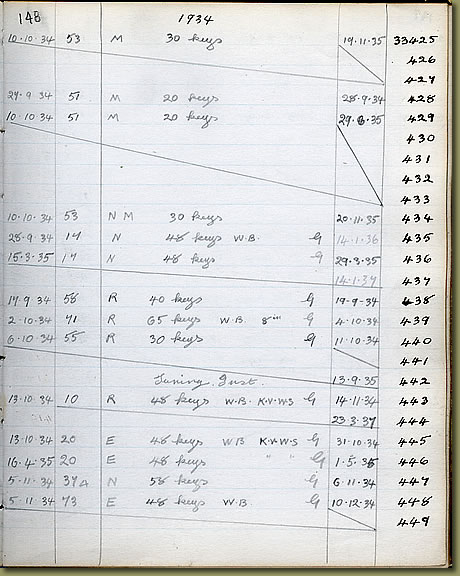 148 1934
10.10.34 53 M 30 keys 19.11.35 33425
426
427
27.9.34 51 M 20 keys 28.9.34 428
10.10.34 51 M 20 keys 29.8.35 429
430
431
432
433
10.10.34 53 N M 30 keys 20.11.35 434
28.9.34 17 N 48 keys W.B. G 14.1.36 435
15.3.35 17 N 48 keys G 29.3.35 436
14.1.37 437
17.9.34 58 R 40 keys G 19.9.34 438
2.10.34 71 R 65 keys W.B. 8''' G 4.10.34 439
6.10.34 55 R 30 keys G 11.10.34 440
441
Tuning Inst. 13.9.35 442
13.10.34 10 R 48 keys W.B. K.V.W.S G 14.11.34 443
23.3.37 444
13.10.34 20 E 48 keys W B K.V.W.S G 31.10.34 445
16.4.35 20 E 48 keys " " G 1.5.35 446
5.11.34 37A N 58 keys G 6.11.34 447
5.11.34 73 E 48 keys W.B G 10.12.34 448
449